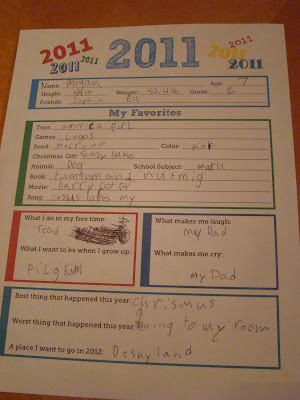 2011 2011 2011 2011 2011 2011 2011
Name: Megan Age: 7
Height: 49in Weight: 52.4 lb Grade: 2
Friends: Sophia Ell
My Favorites
Toys: america girl
Games: Legos
Food: Color: pink
Christmas Gift: Easy bake
Animal: Dog School Subject: math
Book: tumtum and nutmig
Movie: harry potter
Song: Jesus loves my
What I do in my free time:
read
What I want to be when I grow up:
PilgruM
What makes me laugh:
my Dad
What makes me cry:
my Dad
Best thing that happened this year: chrismus
Worst thing that happened this year: going to my room
A place I want to go in 2012: Desnyland